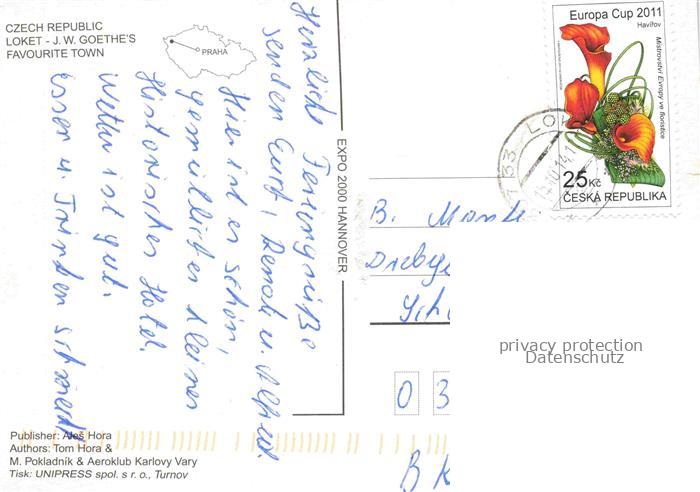 CZECH REPUBLIC
LOKET - J. W. GOETHE'S
FAVOURITE TOWN
PRAHA
Herzliche Feriengrüße
senden Curt, Renate u. Alfred.
Hier ist es schön,
gemütliches kleines
Historisches Hotel.
Wetter ist gut.
Essen u. Trinken schmeckt
EXPO 2000 HANNOVER
Europa Cup 2011
Havířov
Mistrovství Evropy ve floristice
25 Kč
ČESKÁ REPUBLIKA
733 LOK
B.
0 3
privacy protection
Datenschutz
Publisher: Aleš Hora
Authors: Tom Hora &
M. Pokladník & Aeroklub Karlovy Vary
Tisk: UNIPRESS spol. s r. o., Turnov